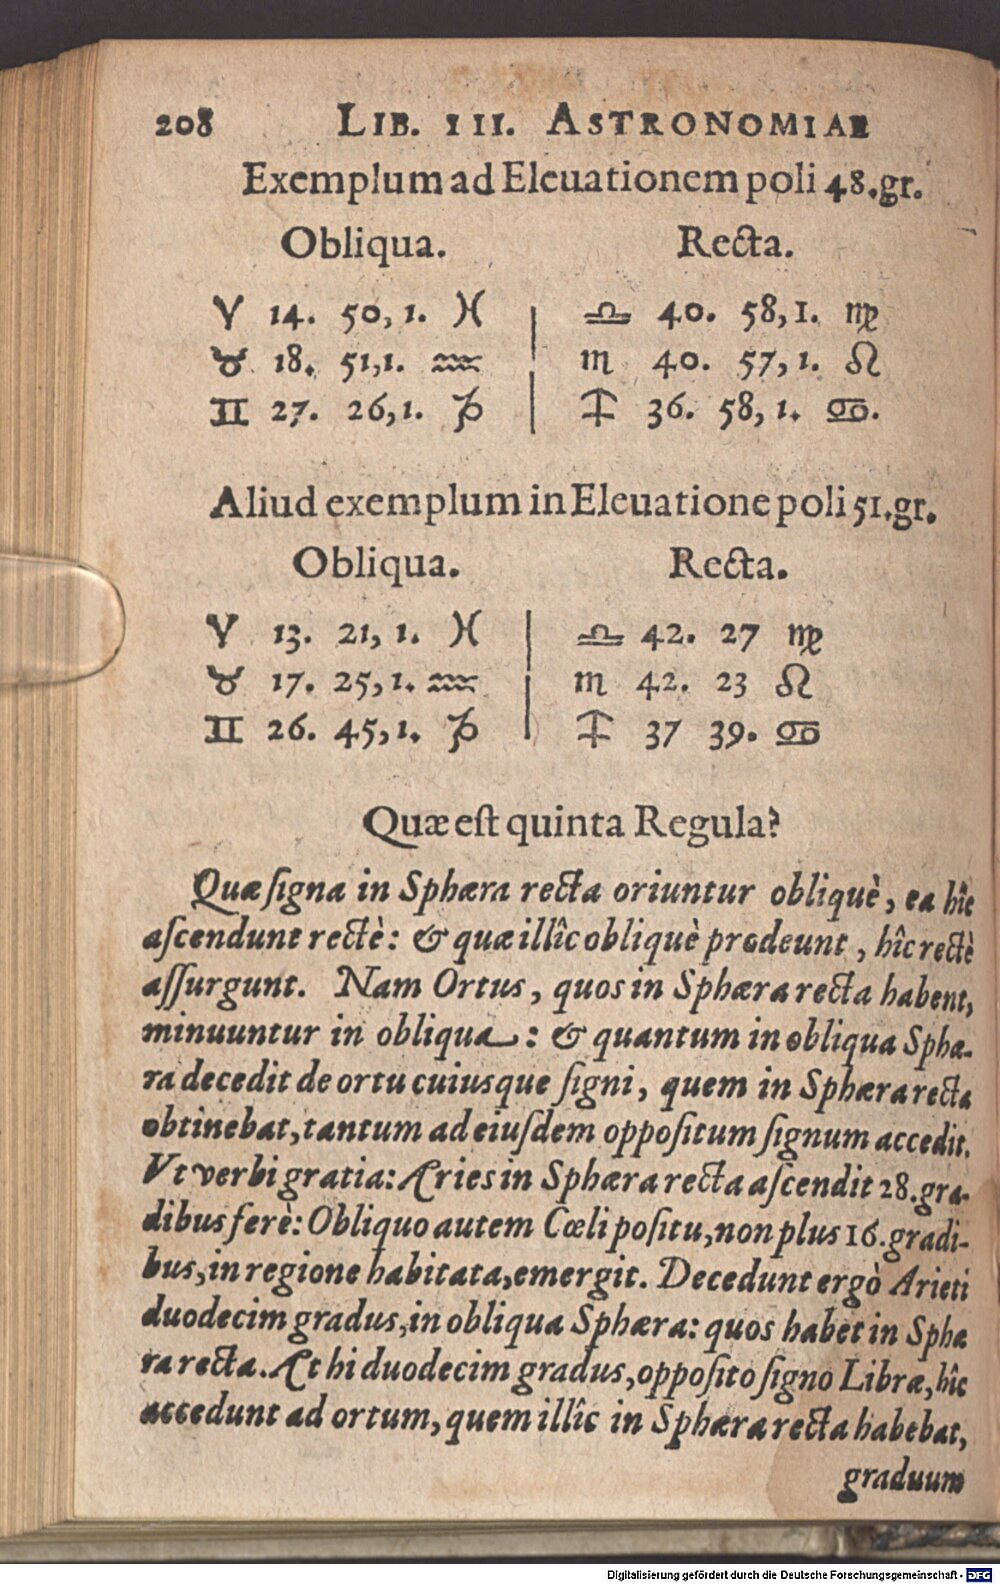 208 LIB. III. ASTRONOMIAE
Exemplum ad Eleuationem poli 48.gr.
Obliqua. Recta.
♈ 14. 50, 1. ♓ | ♎ 40. 58, 1. ♍
♉ 18. 51,1. ♒ | ♏ 40. 57, 1. ♌
♊ 27. 26,1. ♑ | ♐ 36. 58, 1. ♋.
Aliud exemplum in Eleuatione poli 51.gr.
Obliqua. Recta.
♈ 13. 21, 1. ♓ | ♎ 42. 27 ♍
♉ 17. 25,1. ♒ | ♏ 42. 23 ♌
♊ 26. 45,1. ♑ | ♐ 37 39. ♋
Quæ est quinta Regula?
Quæ ſigna in Sphæra recta oriuntur obliquè, ea hîc
aſcendunt rectè: & quæ illîc obliquè prodeunt, hîc rectè
aſſurgunt. Nam Ortus, quos in Sphæra recta habent,
minuuntur in obliqua: & quantum in obliqua Sphæ-
ra decedit de ortu cuiusque ſigni, quem in Sphæra recta
obtinebat, tantum ad eiuſdem oppoſitum ſignum accedit.
Vt verbi gratia: Aries in Sphæra recta aſcendit 28.gra-
dibus ferè: Obliquo autem Cœli poſitu, non plus 16.gradi-
bus, in regione habitata, emergit. Decedunt ergò Arieti
duodecim gradus, in obliqua Sphæra: quos habet in Sphæ
ra recta. At hi duodecim gradus, oppoſito ſigno Libræ, hîc
accedunt ad ortum, quem illîc in Sphæra recta habebat,
graduum
Digitalisierung gefördert durch die Deutsche Forschungsgemeinschaft - DFG